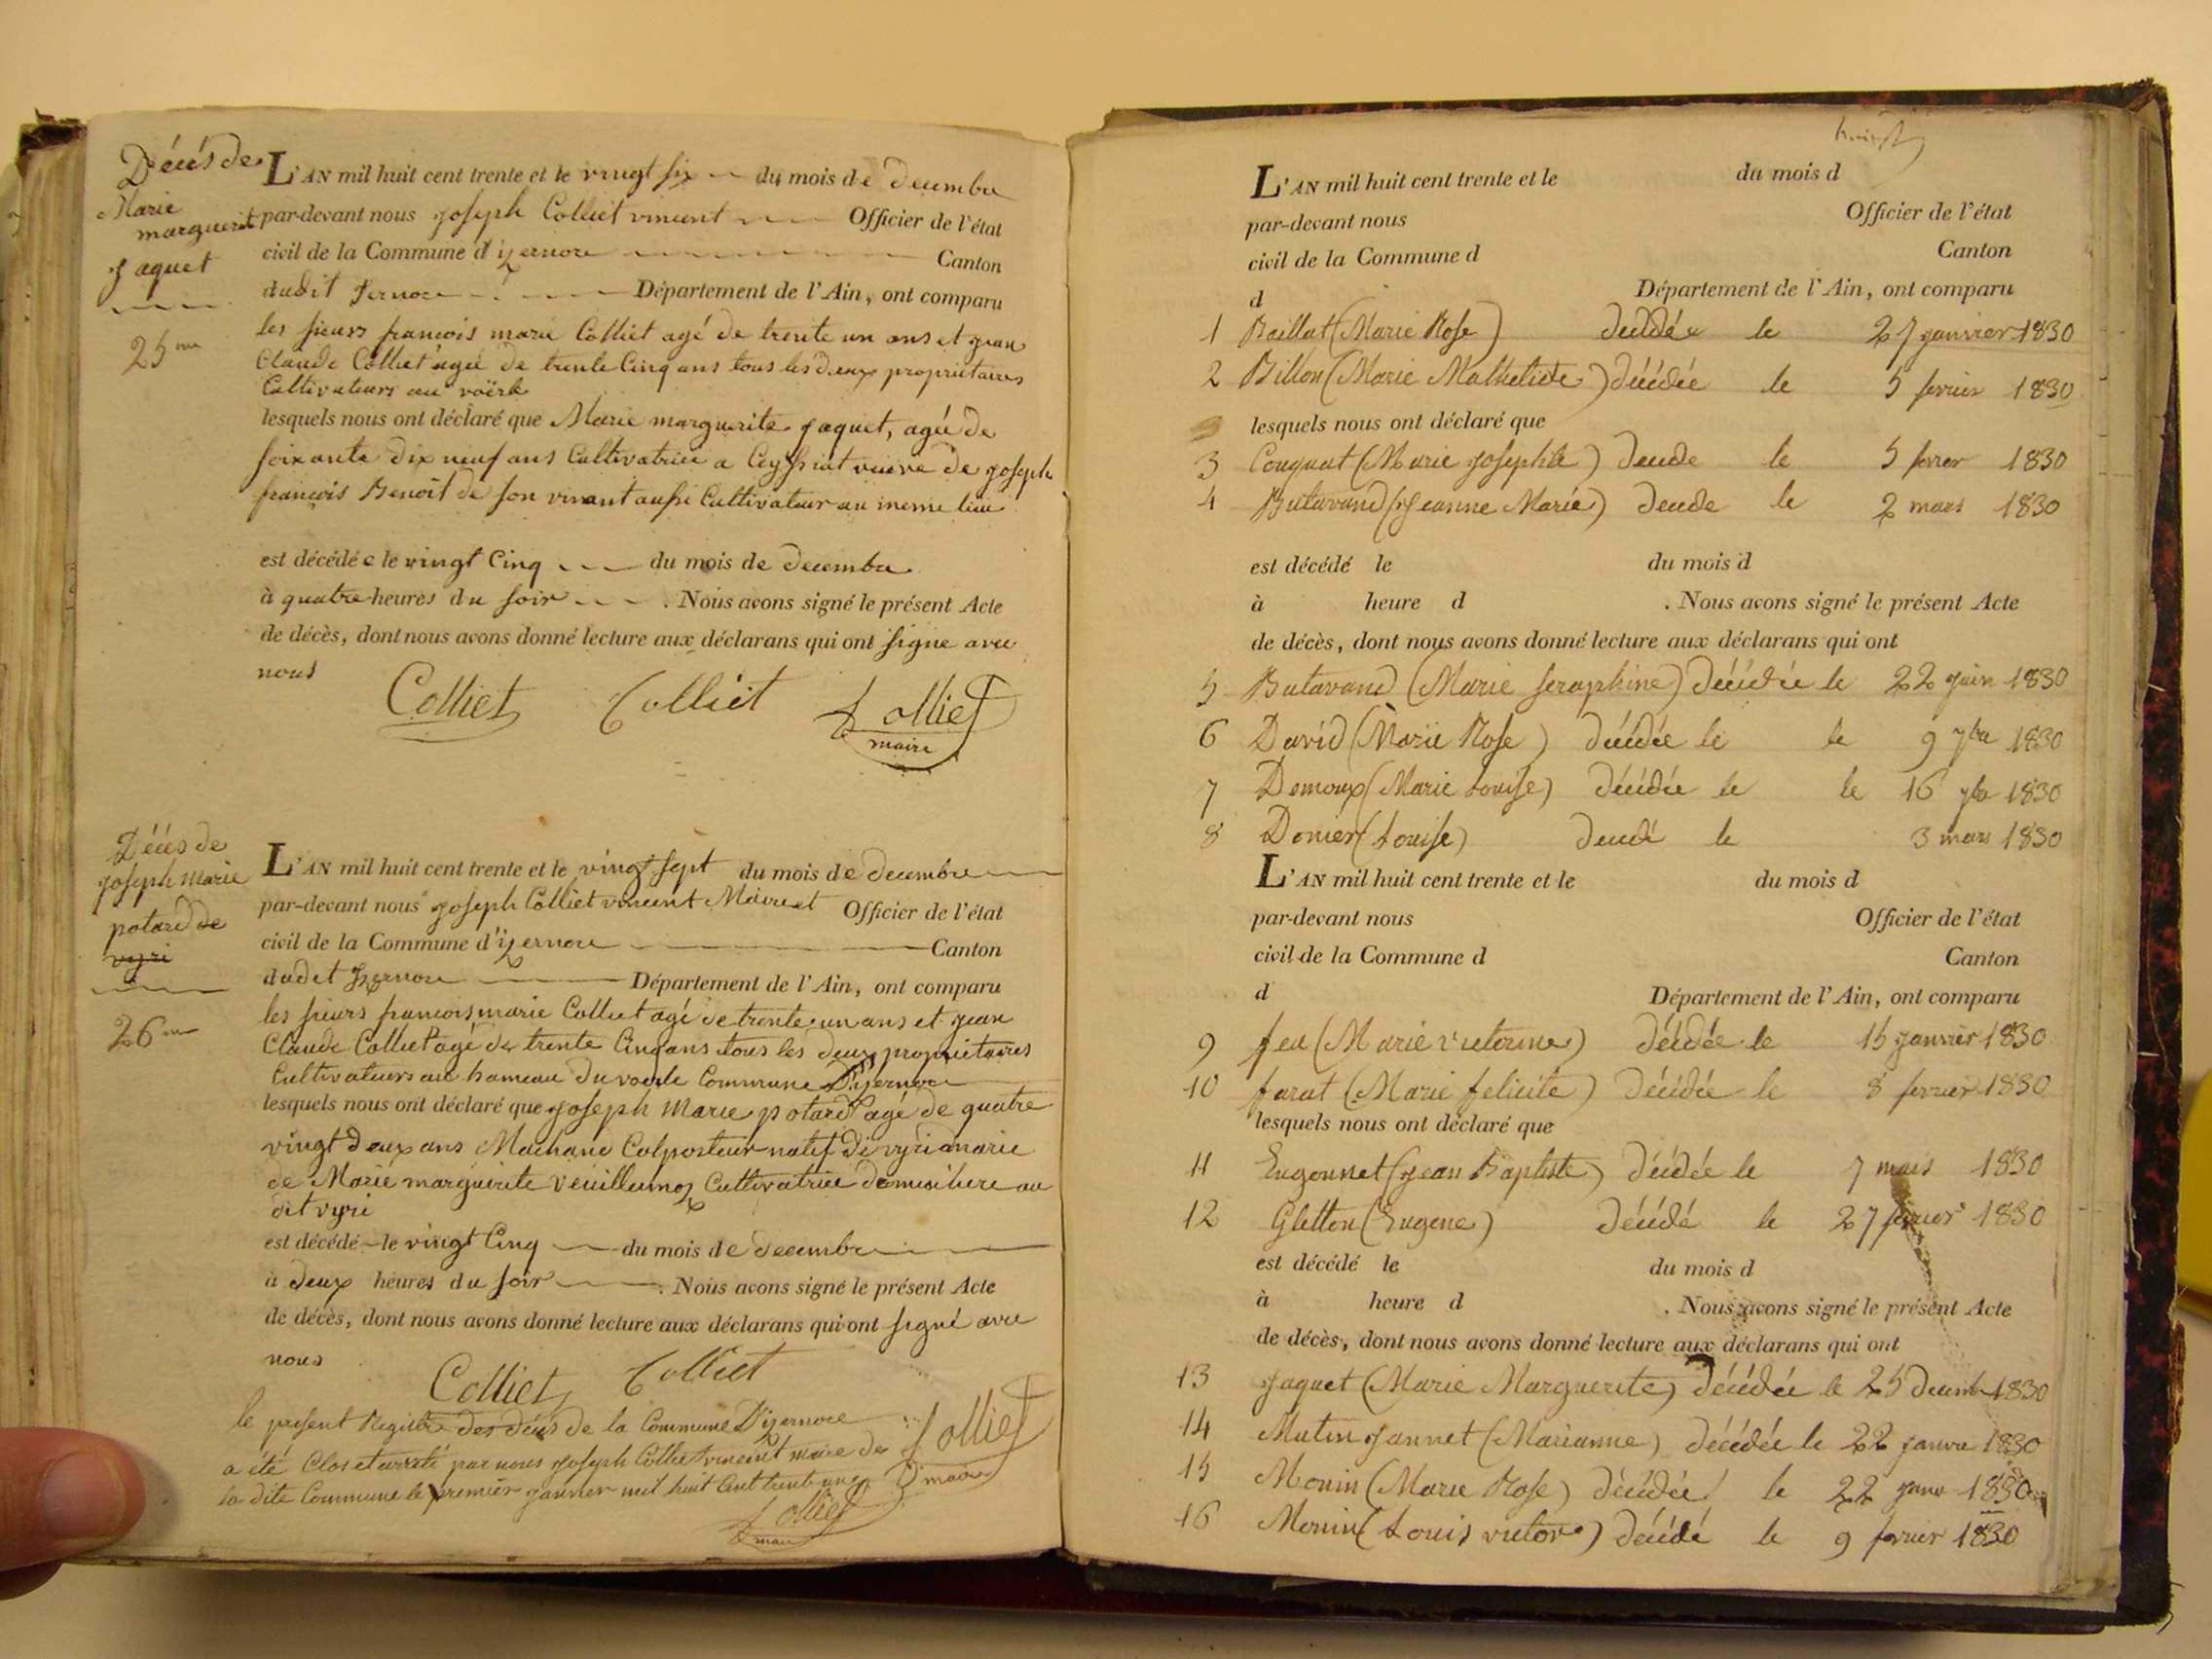 Décès de
Marie
marguerit
Jaquet
25me
L'AN mil huit cent trente et le vingt six du mois de decembre
par-devant nous joseph Colliet vincent Officier de l'état
civil de la Commune d'izernore Canton
dudit izernore Département de l'Ain, ont comparu
les sieurs francois marie Colliet agé de trente un ans et jean
Claude Colliet agé de trente Cinq ans tous les deux proprietaires
Cultivateurs au voërle
lesquels nous ont déclaré que Marie marguerite jaquet, agée de
soixante dix neuf ans Cultivatrice a Ceyssiat veuve de joseph
francois Benoit de son vivant aussi Cultivateur au meme lieu
est décédée le vingt Cinq du mois de decembre
à quatre heures du soir. Nous avons signé le présent Acte
de décès, dont nous avons donné lecture aux déclarans qui ont signé avec
nous
Colliet Colliet Colliet
maire
Décès de
joseph Marie
potard de
vyri
26me
L'AN mil huit cent trente et le vingt sept du mois de decembre
par-devant nous joseph Colliet vincent Maire et Officier de l'état
civil de la Commune d'izernore Canton
dudit izernore Département de l'Ain, ont comparu
les sieurs francois marie Colliet agé de trente un ans et jean
Claude Colliet agé de trente Cinq ans tous les deux proprietaires
Cultivateurs au hameau du voerle Commune D'izernore
lesquels nous ont déclaré que joseph Marie potard agé de quatre
vingt deux ans Marchand Colporteur natif de vyri marie
de Marie marguerite Cultivatrice au
dit vyri
est décédé le vingt Cinq du mois de decembre
à deux heures du soir. Nous avons signé le présent Acte
de décès, dont nous avons donné lecture aux déclarans qui ont signé avec
nous
Colliet Colliet
le present Registre des décès de la Commune D'izernore
a été Clos et arreté par nous joseph Colliet vincent maire de
la dite Commune le premier janvier mil huit Cent trente un
Colliet
maire
Colliet
maire
L'AN mil huit cent trente et le du mois d
par-devant nous Officier de l'état
civil de la Commune d Canton
d Département de l'Ain, ont comparu
1 Baillat (Marie Rose) décédée le 27 janvier 1830
2 Billon (Marie Mathelide) décédée le 5 fevrier 1830
lesquels nous ont déclaré que
3 (Marie josephte) decede le 5 fevrier 1830
4 Butavand (Jeanne Marie) decede le 2 mars 1830
est décédé le du mois d
à heure d . Nous avons signé le présent Acte
de décès, dont nous avons donné lecture aux déclarans qui ont
5 Butavand (Marie seraphine) décédée le 22 juin 1830
6 David (Marie Rose) décédée le le 9 7bre 1830
7 Demoux (Marie Louise) décédée le le 16 1830
8 Donier (Louise) decedé le 3 mars 1830
L'AN mil huit cent trente et le du mois d
par-devant nous Officier de l'état
civil de la Commune d Canton
d Département de l'Ain, ont comparu
9 feu (Marie victorine) décédée le 15 janvier 1830
10 farat (Marie felicite) décédée le 8 fevrier 1830
lesquels nous ont déclaré que
11 Eugonnet (Jean Baptiste) décédée le 7 mars 1830
12 Gletton (Eugene) décédé le 27 fevrier 1830
est décédé le du mois d
à heure d . Nous avons signé le présent Acte
de décès, dont nous avons donné lecture aux déclarans qui ont
13 jaquet (Marie Marguerite) décédée le 25 decemb 1830
14 Mutin jannet (Marianne) décédée le 22 janvier 1830
15 Monin (Marie Rose) décédée le 22 janv 1830
16 Monin (Louis victor) décédé le 9 fevrier 1830